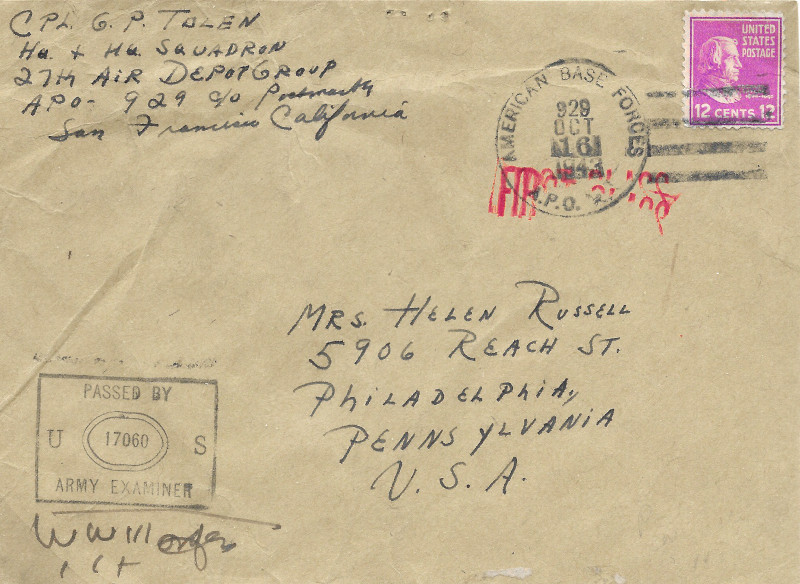 CPL. G. P. TOLEN
HQ. + HQ. SQUADRON
27TH AIR DEPOT GROUP
APO - 929 c/o Postmaster
San Francisco California
UNITED
STATES
POSTAGE
12 CENTS 12
AMERICAN BASE FORCES
929
OCT
16
1943
A.P.O.
FIRST CLASS
MRS. HELEN RUSSELL
5906 REACH ST.
PHILADELPHIA,
PENNSYLVANIA
U.S.A.
PASSED BY
U 17060 S
ARMY EXAMINER